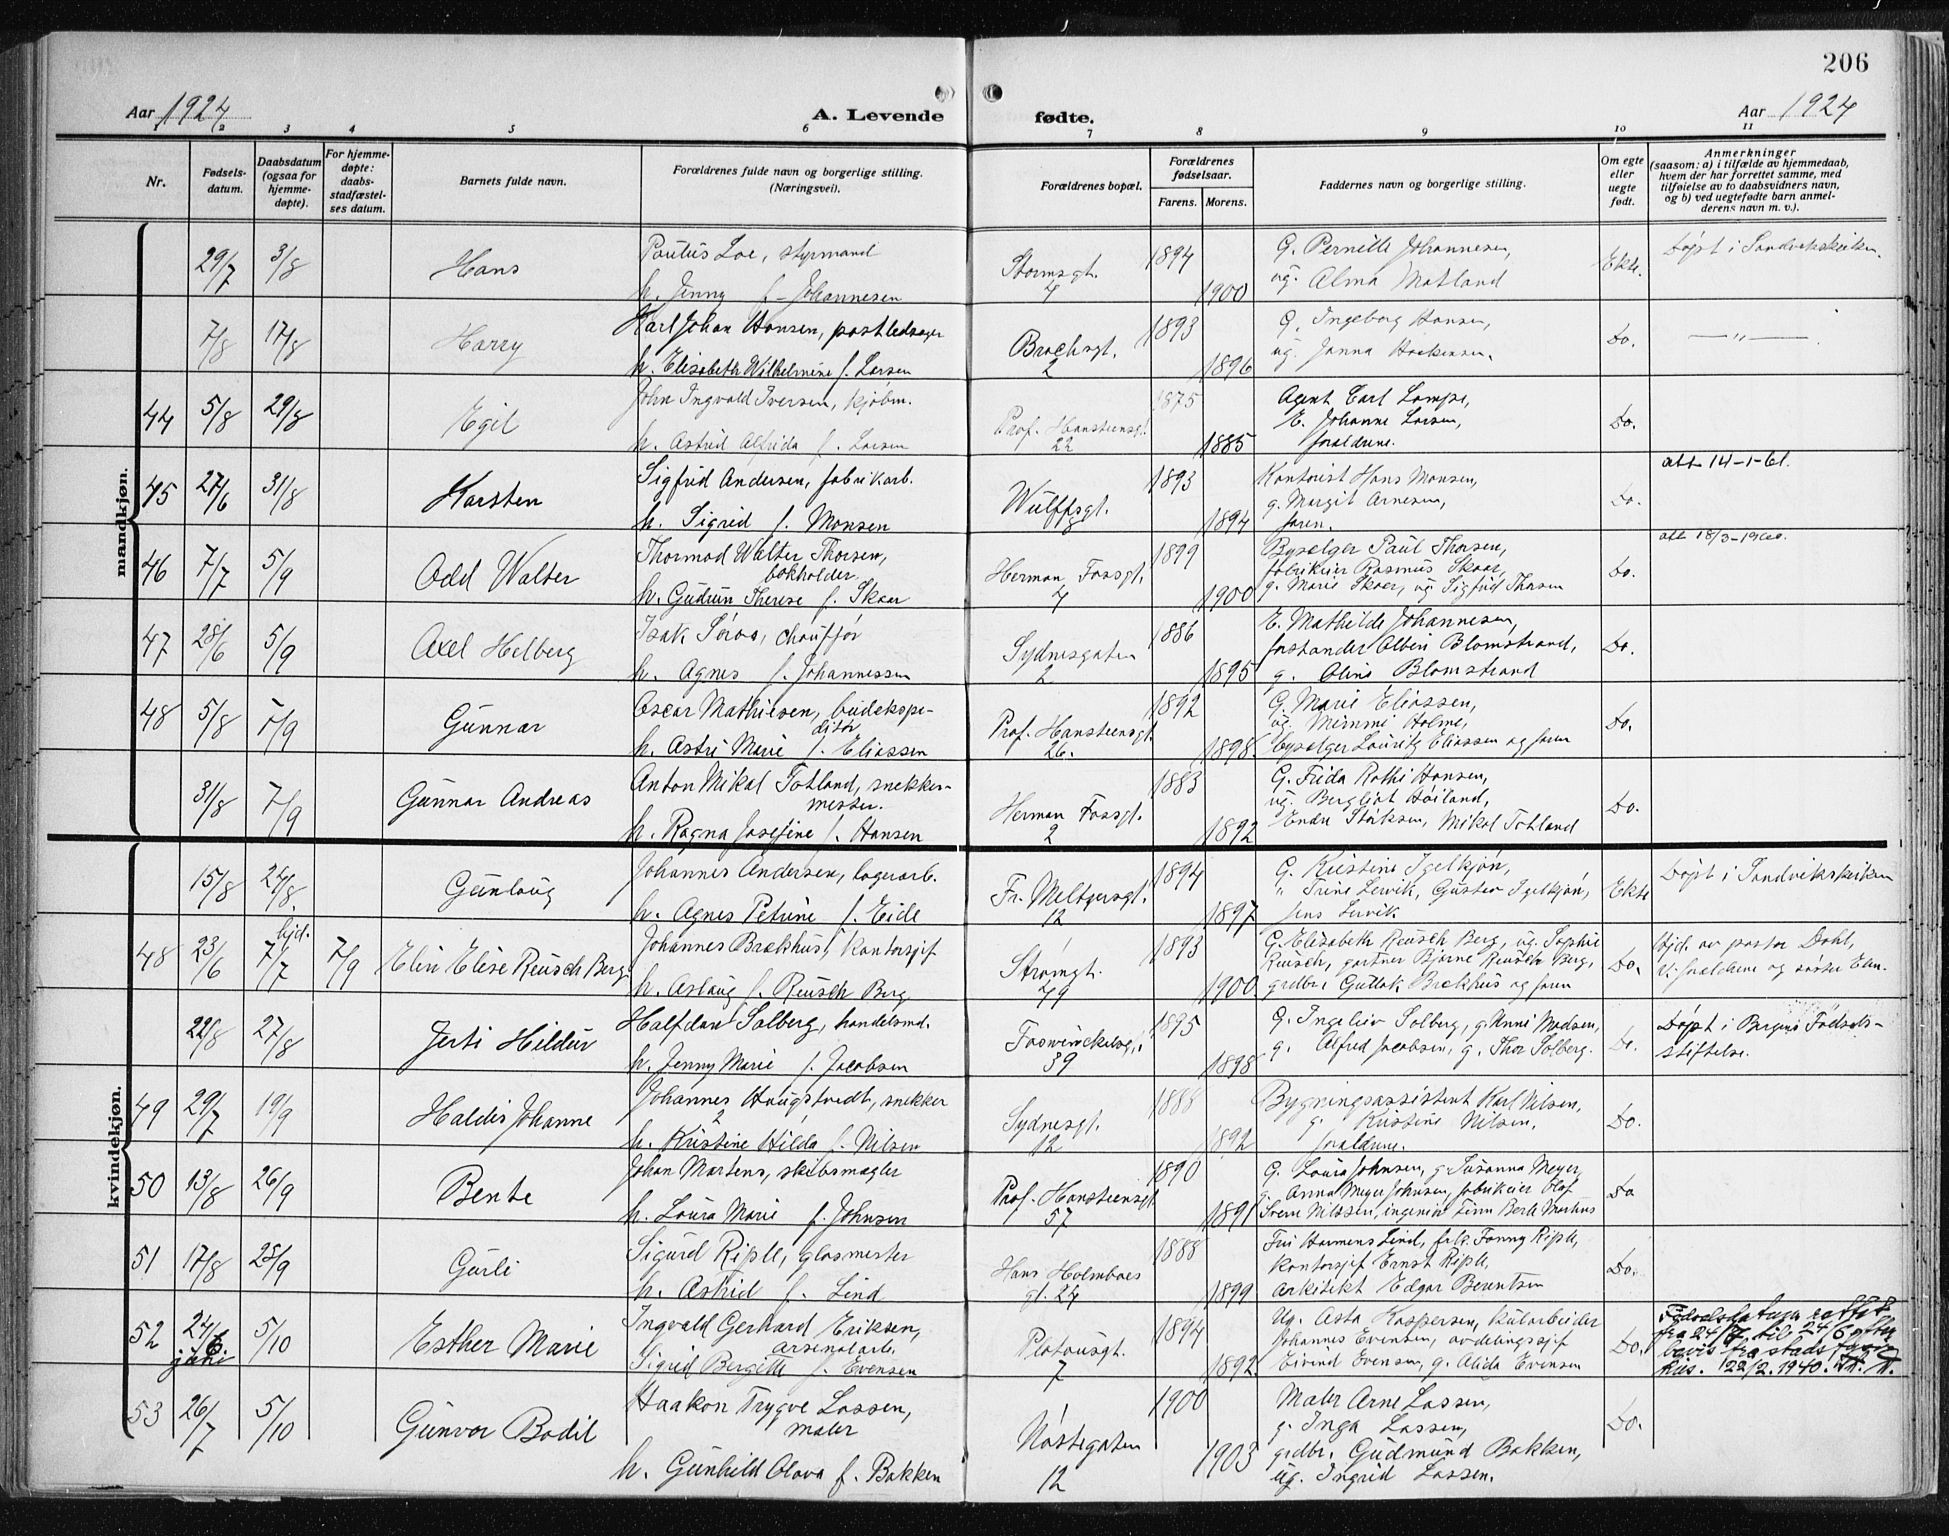 206
Aar 1924
A. Levende fødte.
Aar 1924
1 2 3 4 5 6 7 8 9 10 11
Nr.
Fødsels-
datum.
Daabsdatum
(ogsaa for
hjemme-
døpte).
For hjemme-
døpte:
daabs-
stadfæstel-
ses datum.
Barnets fulde navn.
Forældrenes fulde navn og borgerlige stilling.
(Næringsvei).
Forældrenes bopæl.
Forældrenes
fødselsaar.
Farens. Morens.
Faddernes navn og borgerlige stilling.
Om egte
eller
uegte
født.
Anmerkninger
(saasom: a) i tilfælde av hjemmedaab,
hvem der har forrettet samme, med
tilføielse av to daabsvidners navn,
og b) ved uegtefødte barn anmel-
derens navn m. v.).
mandkjøn.
29/7 3/8 Hans
Paulus Loe, styrmand
h. Jenny f. Johannesen
Stormsgt. 4
1894 1900
G. Pernille Johannesen,
ug. Alma Matland
Ekte.
Døpt i Sandvikskirken.
7/8 17/8 Harry
Karl Johan Hansen, postledsager
h. Elisabeth Wilhelmine f. Larsen
Brochsgt. 2
1893 1896
G. Ingeborg Hansen,
ug. Janna
Do.
— " —
44 5/8 29/8 Egil
John Ingvald Iversen, kjøbm.
h. Astrid Alfrida f. Larsen
Prof. Hansteensgt. 22
1875 1885
Agent Carl Lampe,
E. Johanne Larsen,
foraldrene.
Do.
45 27/6 31/8 Karsten
Sigfrid Andersen, fabrikarb.
h. Sigrid f. Monsen
Wulffsgt. 8
1893 1894
Kontorist Hans Monsen,
g. Margit Arnesen,
faren.
Do.
att 14-1-61.
46 7/7 5/9 Odd Walter
Thormod Walter Thorsen,
bokholder
h. Gudrun Therese f. Skaar
Herman Fossgt. 4
1899 1900
Byselger Paul Thorsen,
fabrikeier Rasmus Skaar,
g. Marie Skaar, ug. Sigfrid Thorsen
Do.
att 18/3-1940.
47 28/6 5/9 Axel Helberg
Isak Søraas, chauffør
h. Agnes f. Johannessen
Sydnesgaten 2
1886 1895
E. Mathilde Johannesen,
forstander Albin Blomstrand,
g. Oline Blomstrand
Do.
48 5/8 7/9 Gunnar
Oscar Mathiesen, budekspe-
ditør
h. Astri Marie f. Eliassen
Prof. Hansteensgt. 26.
1892 1898.
G. Marie Eliassen,
ug. Mimmi Holme,
byselger Lauritz Eliassen og faren
Do.
31/8 7/9 Gunnar Andreas
Anton Mikal Totland, snekker-
mester.
h. Ragna Josefine f. Hansen
Herman Fossgt. 2
1883 1892
G. Frida Hansen,
ug. Bergljot Høiland,
Mikal Totland
Do.
kvindekjøn.
15/8 24/8. Gunlaug
Johannes Andersen, lagerarb.
h. Agnes Petrine f. Eide
Fr. Meltzersgt. 12
1894 1897
G. Kristine Igelkjøn,
" Trine Lervik, Gustav Igelkjøn,
Jens Lervik
Ekte
Døpt i Sandvikskirken
48 23/6 hjd. 7/7 7/9 Elin Elise Reusch Berg
Johannes Brækhus, kontorsjef
h. Aslaug f. Reusch Berg
Strømgt. 49
1893 1900.
G. Elisabeth Reusch Berg, ug. Sophie
Reusch, gartner Bjarne Reusch Berg,
grdbr. Gutlak Brækhus og faren
Do.
Hjd. av pastor Dahl,
v. foraldrene og søster Elin.
22/8 27/8 Jerti Hildur
Halfdan Solberg, handelsmd.
h. Jenny Marie f. Jacobsen
Foswinckelsgt. 39
1895 1898
G. Ingeleiv Solberg, g. Anni Madsen,
g. Alfred Jacobsen, g. Thor Solberg.
Do.
Døpt i Bergens Fødsels-
stiftelse.
49 29/7 19/9 Haldis Johanne
Johannes Haugstvedt, snekker
h. Kristine Hilda f. Nilsen
Sydnesgt. 12
1888 1892
Bygningsassistent Karl Nilsen,
g. Kristine Nilsen,
foraldrene.
Do.
50 13/8 26/9 Bente
Johan Martens, skibsmægler
h. Laura Marie f. Johnsen
Prof. Hansteensgt. 57
1890 1891
G. Laura Johnsen, g. Susanna Meyer,
g. Anna Meyer Johnsen, fabrikeier Olaf
Sverre Nilssen, ingeniør Finn Berle Martens
Do
51 17/8 28/9 Gurli
Sigurd Riple, glasmester
h. Astrid f. Lind
Hans Holmboes gt. 24
1888 1899
Fru Harmens Lind, frk. Fanny Riple,
kontorsjef Ernst Riple,
arkitekt Edgar Berentsen
Do.
52 24/6. juni 5/10 Esther Marie
Ingvald Gerhard Eriksen,
arsenalarb.
Sigrid Bergitte f. Evensen
Platousgt. 7
1894 1892
Ug. Asta Kaspersen, kularbeider
Johannes Evensen, avdelingssjef
Eivind Evensen, g. Alida Evensen
Do.
Fødselsdatum rettet
fra 24/7 til 24/6 efter
bevis fra stads
hus. 22/2.1940.
53 26/7 5/10 Gunvor Bodil
Haakon Trygve Lassen,
maler
h. Gunhild Olava f. Bakken
Nøstegaten 12
1900 1903
Maler Arne Lassen,
g. Inga Lassen,
grdbr. Gudmund Bakken,
ug. Ingrid Lassen.
Do.